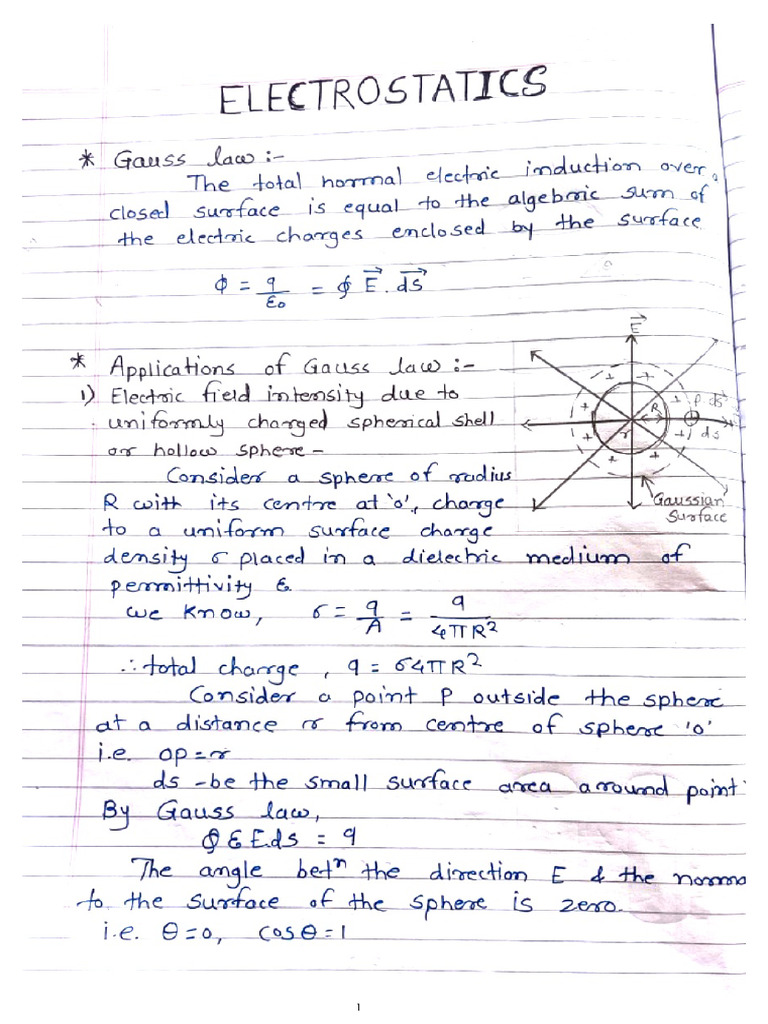 ELECTROSTATICS
* Gauss law :-
The total normal electric induction over
closed surface is equal to the algebric sum of
the electric charges enclosed by the surface
ϕ = q/ε₀ = ∮ E⃗ . ds⃗
* Applications of Gauss law :-
1) Electric field intensity due to
uniformly charged spherical shell
or hollow sphere -
E⃗
P ds⃗
R
r
ds
Gaussian
Surface
Consider a sphere of radius
R with its centre at 'o', charge
to a uniform surface charge
density σ placed in a dielectric medium of
permittivity ε.
we know, σ = q/A = q/4πR²
∴ total charge, q = σ4πR²
Consider a point P outside the sphere
at a distance r from centre of sphere 'o'
i.e. op = r
ds - be the small surface area around point
By Gauss law,
∮ ε E.ds = q
The angle betⁿ the direction E & the norma
to the surface of the sphere is zero.
i.e. θ = 0, cosθ = 1
1